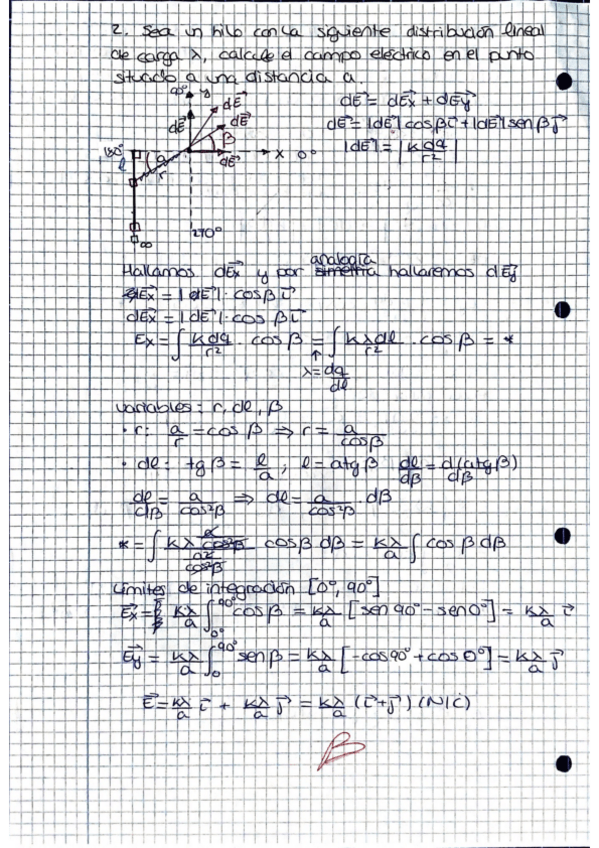 2. Sea un hilo con la siguiente distribución lineal
de carga λ, calcule el campo eléctrico en el punto
situado a una distancia a.
90° y
dE⃗
dE⃗
dE⃗
β
dE⃗
x 0°
180°
l
a
r
∞
270°
dE⃗ = dEx⃗ + dEy⃗
dE⃗ = |dE⃗| cosβ i⃗ + |dE⃗| sen β j⃗
|dE⃗| = |K dq / r²|
analogía
Hallamos dEx⃗ y por simetría hallaremos dEy⃗
dEx⃗ = |dE⃗| · cosβ i⃗
dEx⃗ = |dE⃗| · cos β i⃗
Ex = ∫ K dq / r² · cos β = ∫ K λ dl / r² · cos β = *
λ = dq / dl
variables: r, dl, β
· r: a / r = cos β ⇒ r = a / cosβ
· dl: tg β = l / a ; l = a tg β dl / dβ = d(a tg β) / dβ
dl / dβ = a / cos²β ⇒ dl = a / cos²β · dβ
* = ∫ K λ a / cos²β / a² / cos²β cos β dβ = Kλ / a ∫ cos β dβ
Límites de integración [0°, 90°]
Ex⃗ = Kλ / a ∫₀°^90° cos β = Kλ / a [sen 90° - sen 0°] = Kλ / a i⃗
Ey⃗ = Kλ / a ∫₀^90° sen β = Kλ / a [-cos 90° + cos 0°] = Kλ / a j⃗
E⃗ = Kλ / a i⃗ + Kλ / a j⃗ = Kλ / a (i⃗ + j⃗) (N/C)
B